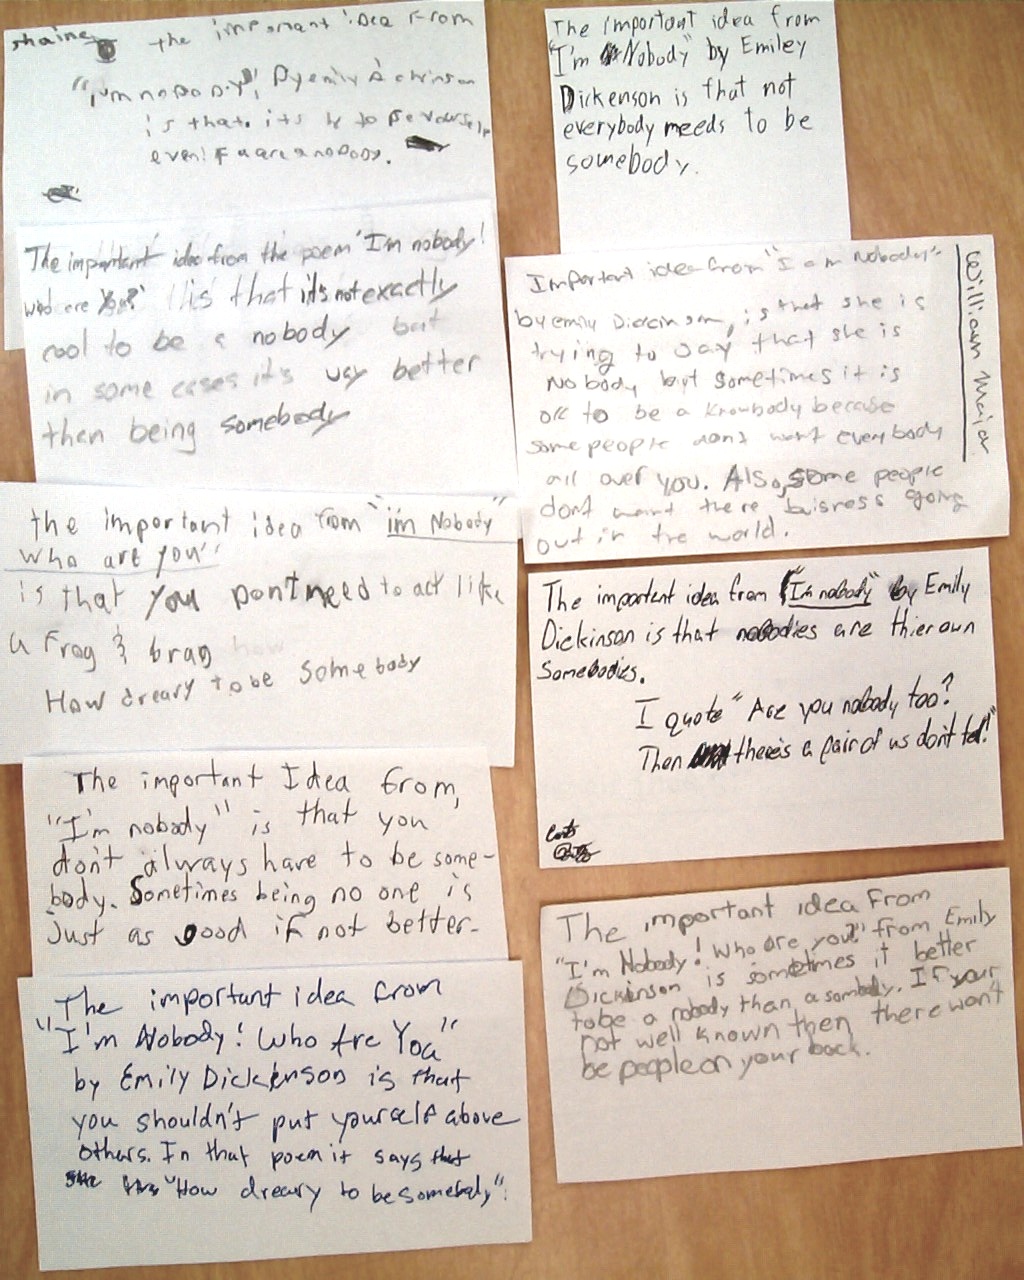 shaine the important idea from
"i,m nobody", By emily Dickinson
is that. its to be yourself
even if u are a nobody.
The important idea from the poem "I'm nobody!
who are you?" is that it's not exactly
cool to be a nobody but
in some cases it's way better
then being somebody
the important idea from "im Nobody"
who are you"
is that you Don't need to act like
a frog & brag
How dreary to be somebody
The important Idea from,
"I'm nobody" is that you
don't always have to be some-
body. Sometimes being no one is
just as good if not better.
The important idea from
"I'm Nobody! Who Are You"
by Emily Dickenson is that
you shouldn't put yourself above
others. In that poem it says that
"How dreary to be somebody".
The important idea from
"I'm Nobody" by Emiley
Dickenson is that not
everybody needs to be
somebody.
William Major
Important idea from "I am Nobody"
by emily Dickinson, is that she is
trying to say that she is
Nobody but sometimes it is
ok to be a knowbody because
some people dont want everybody
all over you. Also, some people
dont want there buisness going
out in the world.
The important idea from "I'm nobody" by Emily
Dickinson is that nobodies are thier own
Somebodies.
I quote "Are you nobody too?
Then there's a pair of us don't tell!"
The important idea from
"I'm Nobody! Who are you?" from Emily
Dickinson is sometimes it better
to be a nobody than a sombody. If your
not well known then there won't
be people on your back.